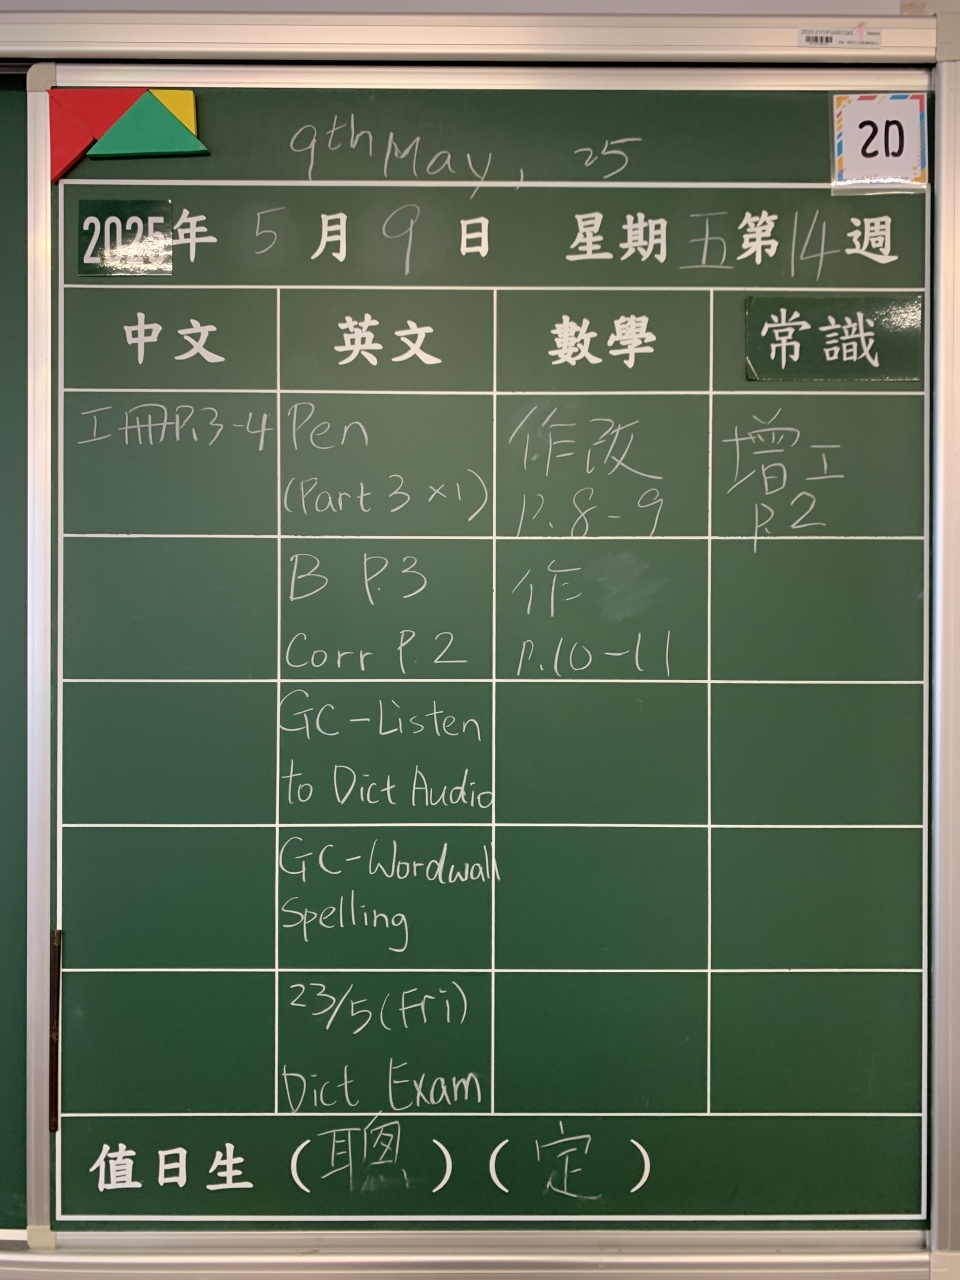 9th May, 25
2D
2025年 5 月 9 日 星期 五 第 14 週
中文 英文 數學 常識
工冊P.3-4
Pen
(Part 3 ×1)
作改
P.8-9
增工
P.2
B P.3
Corr P.2
作
P.10-11
GC-Listen
to Dict Audio
GC-Wordwall
Spelling
23/5(Fri)
Dict Exam
值日生(聰)(定)